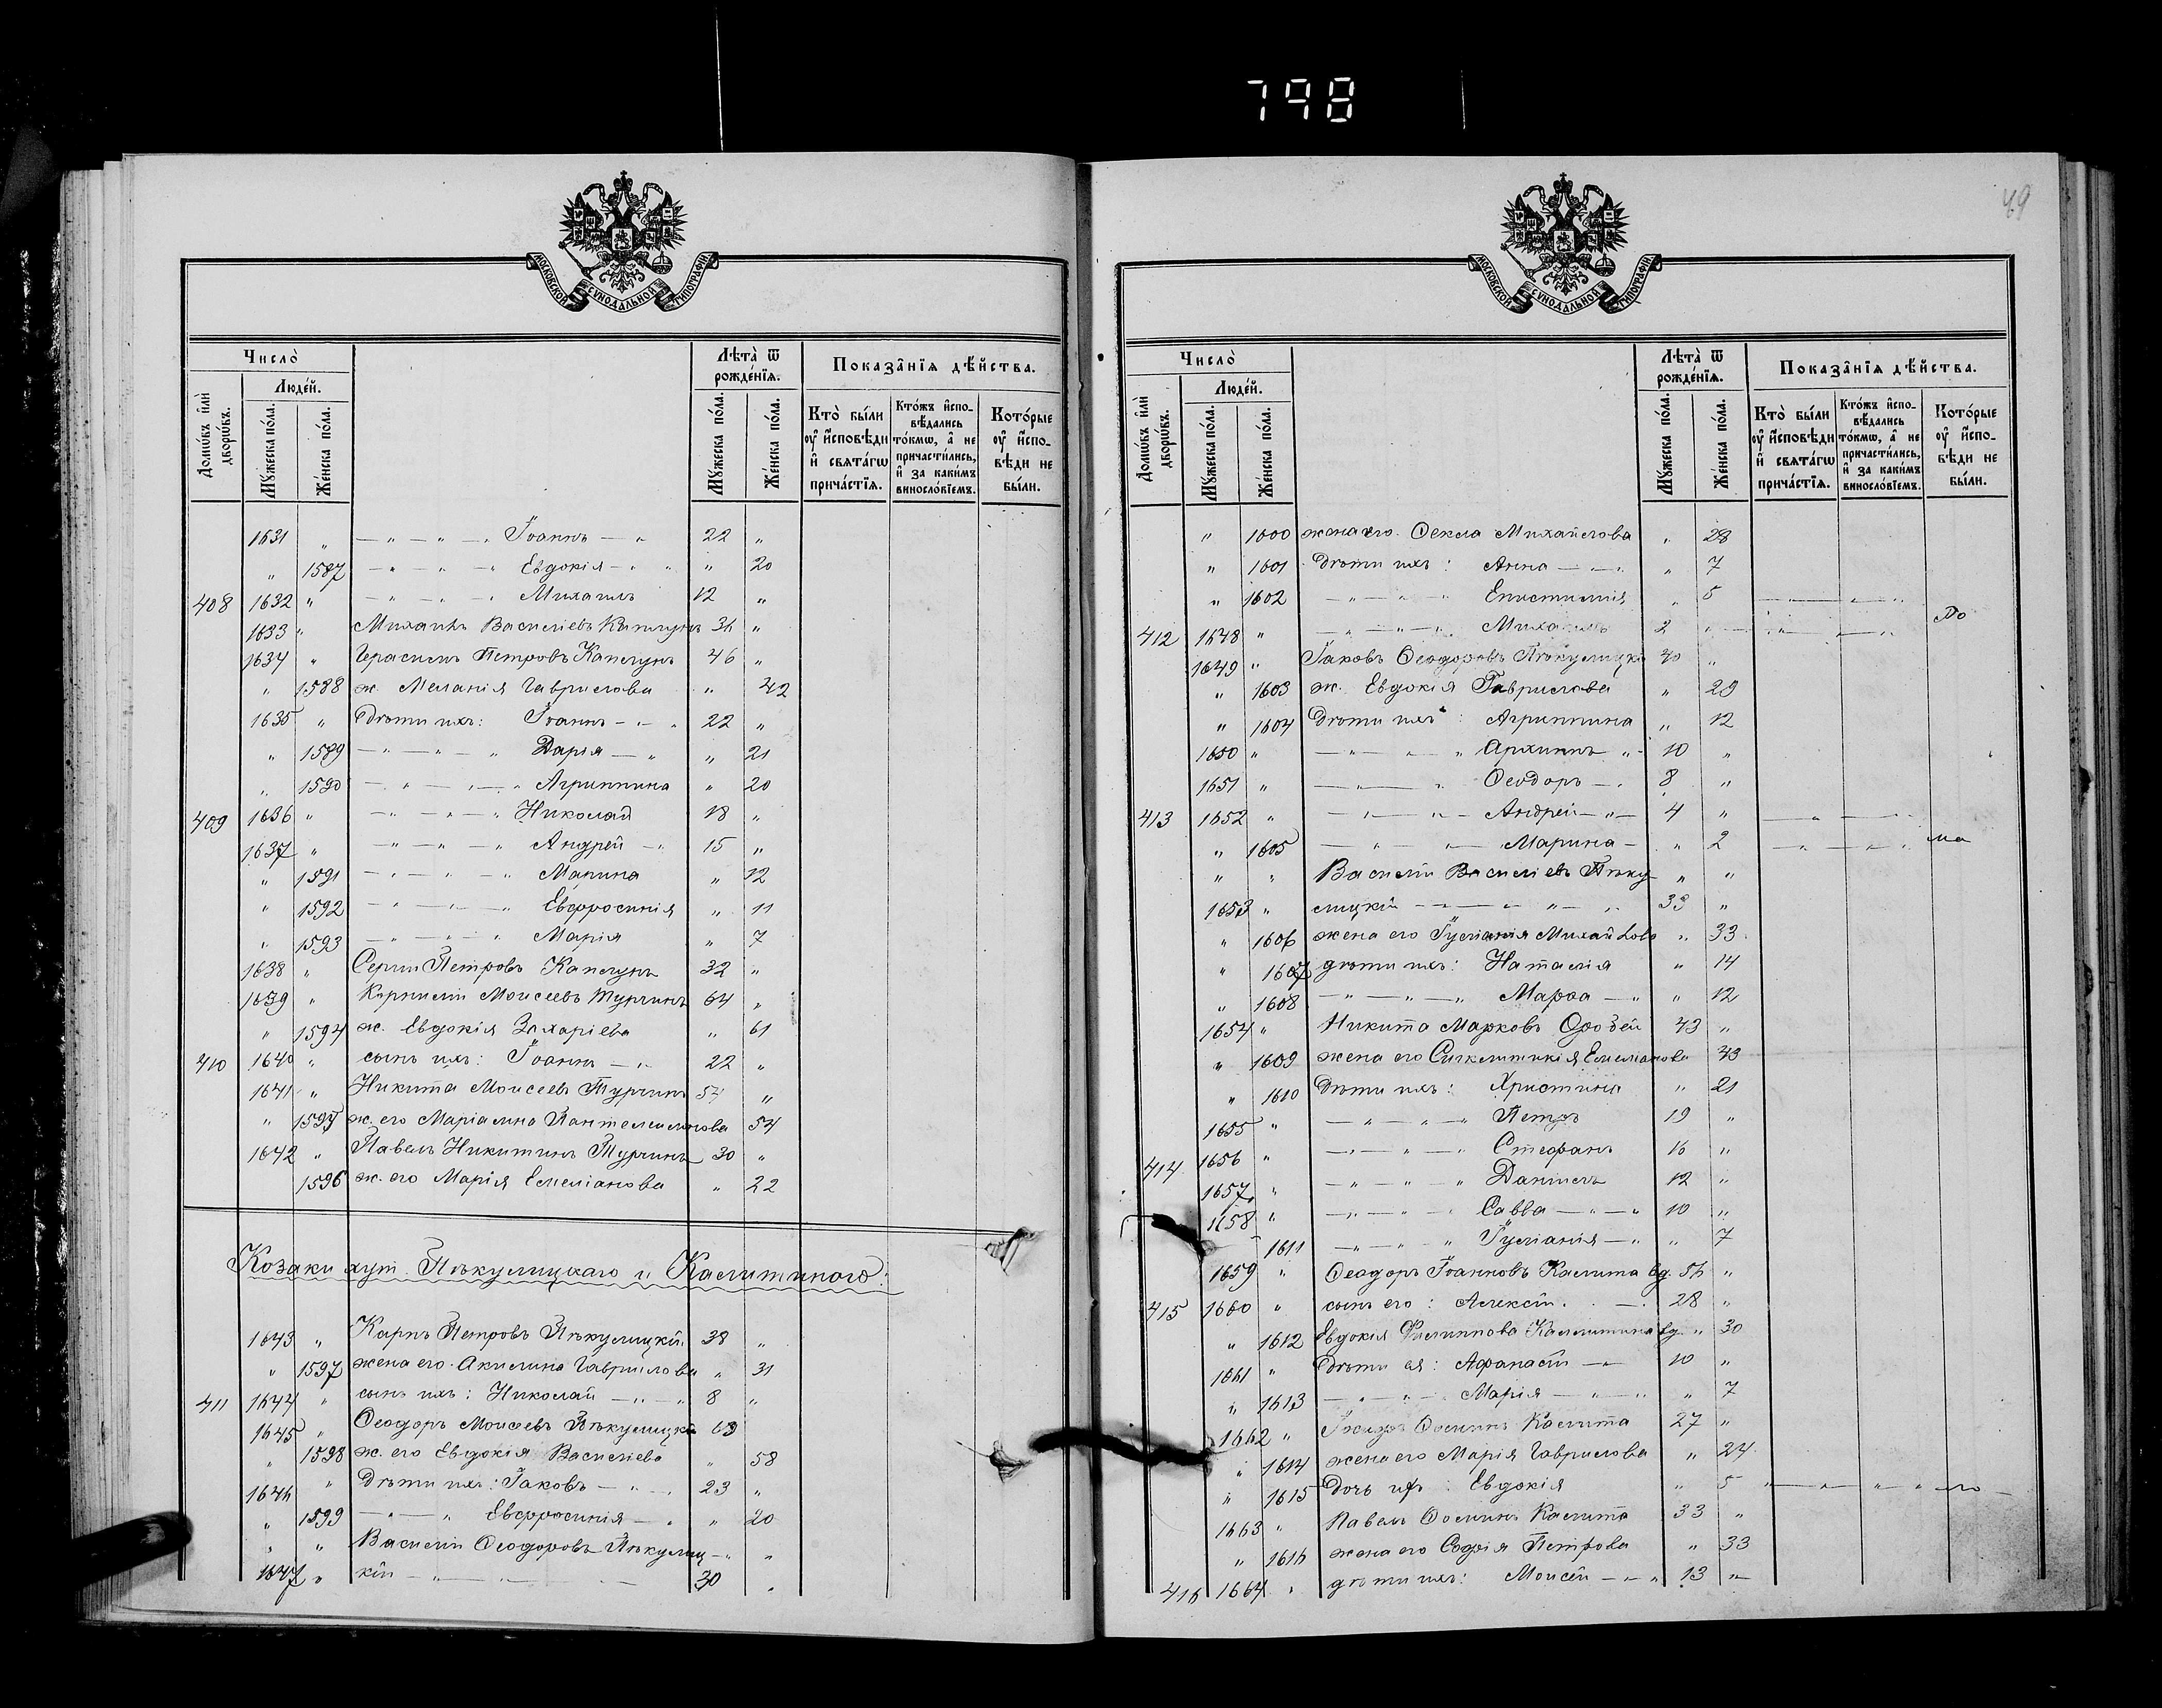 798
МОСКОВСКОЙ СѴНОДАЛЬНОЙ ТИПОГРАФІИ
Число̀
Людей.
Домѡвъ и҆лѝ дворѡвъ.
Мꙋжеска по́ла.
Же́нска по́ла.
Лѣта̀ ѿ рожде́нїѧ.
Мꙋжеска по́ла.
Же́нска по́ла.
Показа̂нїѧ дѣ́йства.
Кто̀ бы́ли ᲂу҆ и҆́сповѣди и҆ свѧта́гѡ прича́стїѧ.
Кто́жъ и҆спо-вѣ́дались то́кмѡ, а҆ не причасти́лись, и҆ за каки́мъ винослові́емъ.
Кото́рые ᲂу҆ и҆́спо-вѣди не бы́ли.
1631 " — " — " — " Іоаннъ — " 22 "
" 1587 — " — " — " Евдокія — " " 20
408 1632 " — " — " — " Михаилъ 12 "
1633 " Михаилъ Василіевъ Каплунъ 36 "
1634 " Герасимъ Петровъ Каплунъ 46 "
" 1588 ж. Меланія Гаврилова " 42
1635 " Дѣти ихъ: Іоаннъ — " 22 "
" 1589 — " — " — " Дарія — " " 21
" 1590 — " — " — " Агриппина " 20
409 1636 " — " — " — " Николай 18 "
1637 " — " — " — " Андрей — " 15 "
" 1591 — " — " — " Марина " 12
" 1592 — " — " — " Евфросинія " 11
" 1593 — " — " — " Марія " 7
1638 " Сергій Петровъ Каплунъ 32 "
1639 " Корнилій Моисеевъ Турчинъ 64 "
" 1594 ж. Евдокія Захаріева " 61
410 1640 " сынъ ихъ: Іоаннъ — " 22 "
1641 " Никита Моисеевъ Турчинъ 57 "
" 1595 ж. его Маріамна Пантелеимонова 54
1642 " Павелъ Никитинъ Турчинъ 30 "
1596 ж. его Марія Емеліанова " 22
Козаки хут. Пѣкулицкаго и Калитиного:
1643 " Карпъ Петровъ Пѣкулицкій 38 "
" 1597 жена его Акилина Гаврилова " 31
411 1644 " сынъ ихъ: Николай — " — " 8 "
1645 " Ѳеодоръ Моисеевъ Пѣкулицкій 63
" 1598 ж. его Евдокія Василіева " 58
1646 " Дѣти ихъ: Іаковъ — " — " 23 "
" 1599 — " — " Евфросинія — " " 20
" " Василій Ѳеодоровъ Пѣкулиц- " "
1647 " кій — " — " — 30 "
49
МОСКОВСКОЙ СѴНОДАЛЬНОЙ ТИПОГРАФІИ
Число̀
Людей.
Домѡвъ и҆лѝ дворѡвъ.
Мꙋжеска по́ла.
Же́нска по́ла.
Лѣта̀ ѿ рожде́нїѧ.
Мꙋжеска по́ла.
Же́нска по́ла.
Показа̂нїѧ дѣ́йства.
Кто̀ бы́ли ᲂу҆ и҆́сповѣди и҆ свѧта́гѡ прича́стїѧ.
Кто́жъ и҆спо-вѣ́дались то́кмѡ, а҆ не причасти́лись, и҆ за каки́мъ винослові́емъ.
Кото́рые ᲂу҆ и҆́спо-вѣди не бы́ли.
" 1600 жена его Ѳекла Михайлова " 28
" 1601 Дѣти ихъ: Анна — " — " " 7
" 1602 — " — " — " Епистимія " 5 — " — "
412 1648 " — " — " — " Михаилъ 2 " — " — " до
1649 " Іаковъ Ѳеодоровъ Пѣкулицкій 40 "
" 1603 ж. Евдокія Гаврилова " 29
" 1604 Дѣти ихъ: Агриппина " 12
1650 " — " — " — " Архиппъ " 10 "
1651 " — " — " Ѳеодоръ — " 8 "
413 1652 " — " — " — Андрей — " — 4 " — " — "
" 1605 — " — " — Марина — " 2 — " — " — ма
" " Василій Василіевъ Пѣку- " "
1653 " лицкій — " — " — " 33 "
" 1606 жена его Іуліанія Михайлова " 33
" 1607 дѣти ихъ: Наталія " 14
" 1608 — " — " — " Марѳа — " " 12
1654 " Никита Марковъ 43 "
" 1609 жена его Сигклитикія Емеліанова 43
" 1610 Дѣти ихъ: Христина " 21
1655 " — " — " — " Петръ 19 "
414 1656 " — " — " — " Стефанъ 16 "
1657 " — " — " — " Даніилъ 12 "
1658 " — " — " — " Савва — " — " 10 "
1611 — " — " — " Іуліанія — " " 7
1659 " Ѳеодоръ Іоанновъ Калита вд. 56 "
415 1660 " сынъ его: Алексій — 28 "
" 1612 Евдокія Филиппова Калитина вд. " 30
1661 " Дѣти ея: Аѳанасій — " 10 "
" 1613 — " — " — Марія — " — " " 7
1662 " Ѳоминъ Калита 27 "
" 1614 жена его Марія Гаврилова " 24
" 1615 Дочь ихъ: Евдокія " 5 " — " — " — " ло —
1663 " Павелъ Ѳоминъ Калита 33 "
" 1616 жена его Софія Петрова " 33
416 1664 " дѣти ихъ: Моисей — " — " 13 "